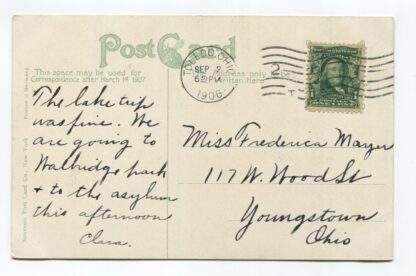 Post Card
This space may be used for
Correspondence after March 1st 1907
Address only to be
Written Here
TOLEDO, OHIO
SEP 2
1908
2
The lake trip
was fine. We
are going to
Walbridge park
& to the asylum
this afternoon
Clara.
Miss Frederica Mayer
117 W. Wood St
Youngstown
Ohio
Souvenir Post Card Co., New York
Printed in Germany